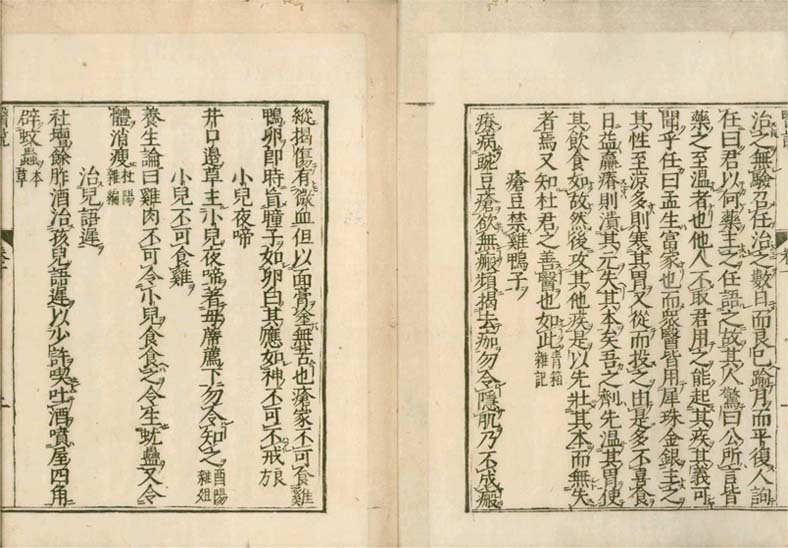 治之無驗召任治之數日而良已踰月而平復人詢
任曰君以何藥主之任語之故其人驚曰公所言皆
藥之至溫者也他人不取君用之能起其疾其義可
聞乎任曰孟生富家也而眾醫皆用犀珠金銀主之
其性至涼多則寒其胃又從而投之由是多不喜食
日益羸瘠則潰其元失其本矣吾之劑先溫其胃使
其飲食如故然後攻其他疾是以先壯其本而無失
者焉又知杜君之善醫也如此青箱雜記
瘡豆禁雞鴨子
療病豌豆瘡欲無瘢頻揭去痂勿令隱肌乃不成瘢
縱揭傷有微血但以面膏塗無苦也瘡家不可食雞
鴨卵即時盲瞳子如卵白其應如神不可不戒良
小兒夜啼
井口邊草主小兒夜啼著母席薦下勿令知之酉陽雜俎
小兒不可食雞
養生論曰雞肉不可令小兒食食之令生蚘蟲又令
體消瘦杜陽雜編
治兒語遲
社壇餘胙酒治孩兒語遲以少許喫吐酒噴屋四角
辟蚊蟲本草